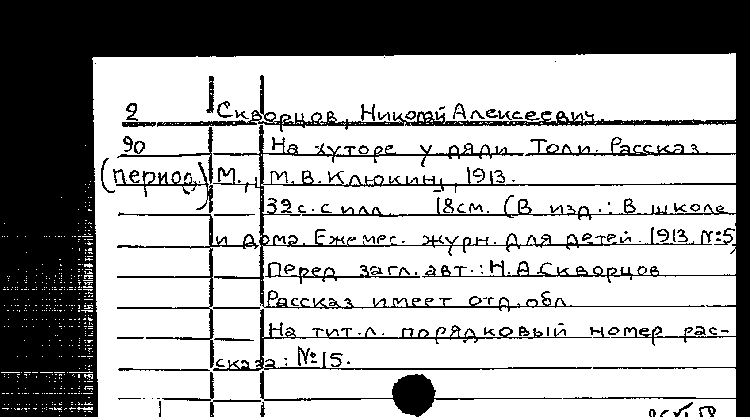 2 Скворцов, Николай Алексеевич.
90 На хуторе у дяди Толи. Рассказ.
(период.) М., М.В. Клюкин, 1913.
32с. с илл. 18см. (В изд.: В школе
и дома. Ежемес. журн. для детей. 1913, №5)
Перед загл. авт.: Н.А.Скворцов
Рассказ имеет отд. обл.
На тит.л. порядковый номер рас-
сказа: №15.